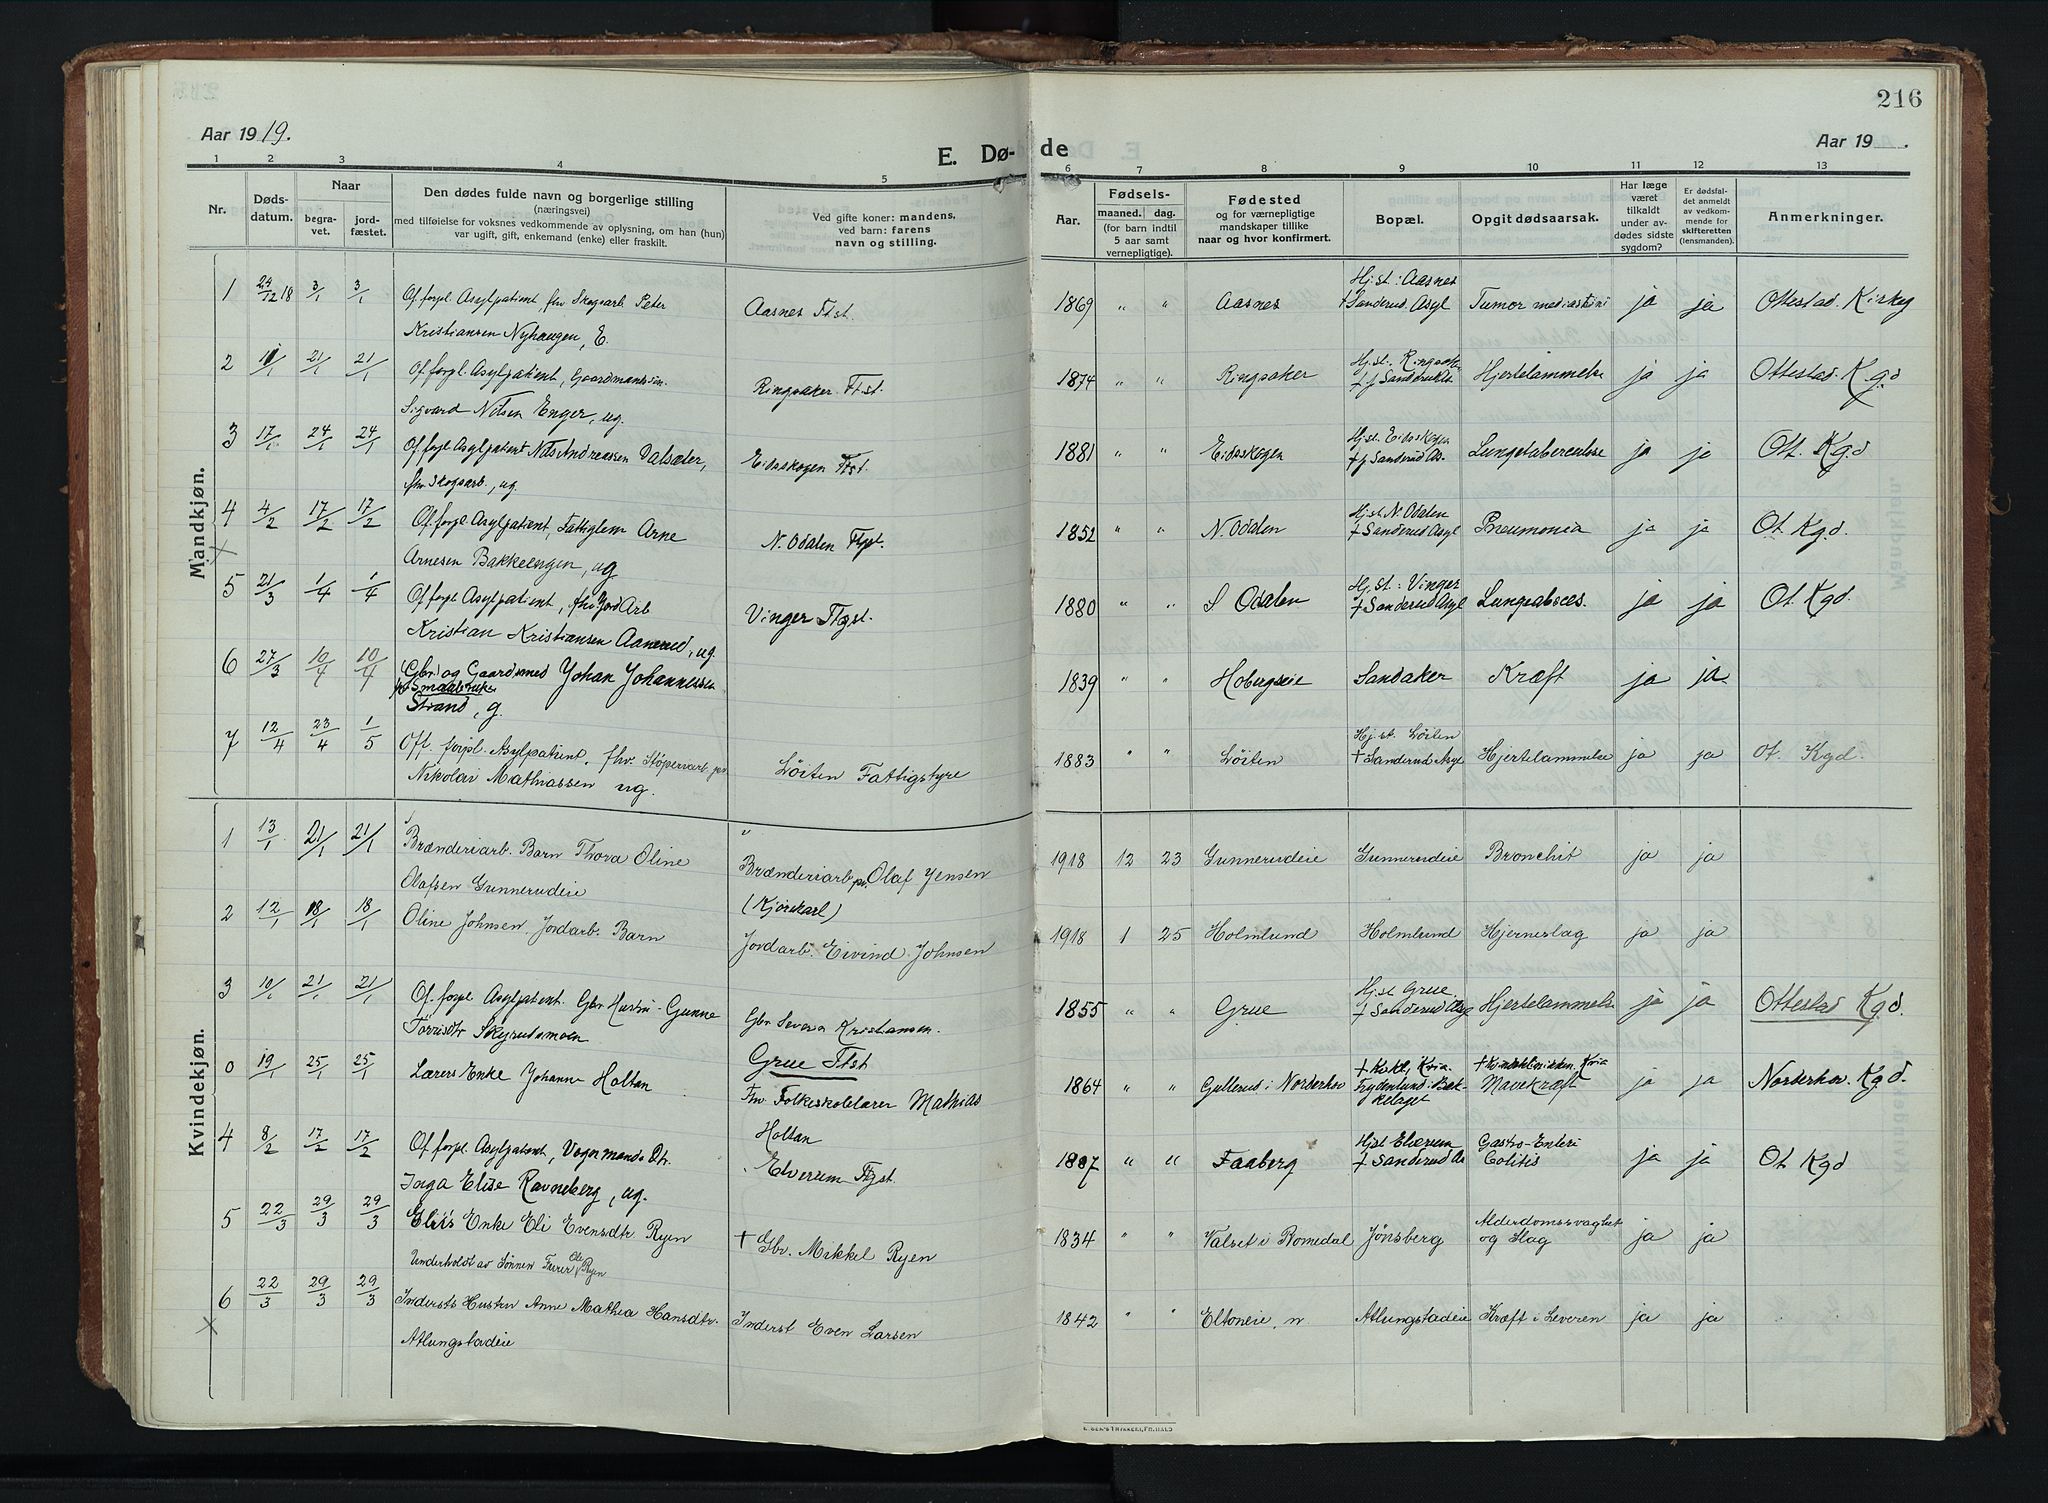 216
Aar 1919.
E. Dø-de
Aar 19 .
1 2 3 4 5 6 7 8 9 10 11 12 13
Nr.
Døds-
datum.
Naar
begra-
vet.
jord-
fæstet.
Den dødes fulde navn og borgerlige stilling
(næringsvei)
med tilføielse for voksnes vedkommende av oplysning, om han (hun)
var ugift, gift, enkemand (enke) eller fraskilt.
Ved gifte koner: mandens,
ved barn: farens
navn og stilling.
Aar.
Fødsels-
maaned. dag.
(for barn indtil
5 aar samt
vernepligtige).
Fødested
og for værnepligtige
mandskaper tillike
naar og hvor konfirmert.
Bopæl.
Opgit dødsaarsak.
Har læge
været
tilkaldt
under av-
dødes sidste
sygdom?
Er dødsfal-
det anmeldt
av vedkom-
mende for
skifteretten
(lensmanden).
Anmerkninger.
Mandkjøn.
1 24/12 18 3/1 3/1 Of. forpl. Asylpatient, fhv Skogsarb. Peter
Kristiansen Nyhaugen, E.
Aasnes Ftst.
1869 " " Aasnes
Hj.st: Aasnes
† Sanderud Asyl
Tumor mediastini ja ja Ottestad. Kirkeg
2 11/1 21/1 21/1 Of. forpl. Asylpatient, Gaardmandssøn.
Sigvard Nilsen Enger, ug.
Ringsaker Ftst.
1874 " " Ringsaker
Hj.st: Ringsak
Hjertelammelse ja ja Ottestad. Kgd
3 17/1 24/1 24/1 Of. forpl Asylpatient Nils Andreassen Valsæter,
fhv Skogsarb., ug.
Eidsskogen Ftst.
1881 " " Eidsskogen
Hj.st. Eidsskogen
† p Sanderud As.
Lungetuberculose ja ja Ot. Kgd
4 4/2 17/2 17/2 Of. forpl. Asylpatient, Fattiglem Arne
Arnesen Bakkeengen, ug
N. Odalen Ftgst.
1852 " " N. Odalen
Hj.st N. Odalen
† Sanderud Asyl
Pneumonia ja ja Ot Kgd.
×
5 21/3 1/4 1/4 Of forpl Asylpatient, fhv Jord Arb
Kristian Kristiansen Aanerud, ug.
Vinger Ftgst.
1880 " " S Odalen
Hj.st: Vinger
† Sanderud Asyl
Lungeabsces. ja ja Ot. Kgd.
6 27/3 10/4 10/4 Gbr. og Gaardsmed Johan Johannessen
p. Smaabruker
Strand, g.
1839 " " Hobergseie Sandaker Kræft ja ja.
7 12/4 23/4 1/5 Off. forpl. Asylpatient. fhv. Støperiarb. pv.
Nikolai Mathiassen ug.
Løiten Fattigstyre
1883 " " Løiten
Hj.st. Løiten
† Sanderud Asyl
Hjertelammelse ja ja Ot. Kgd.
Kvindekjøn.
1 13/1 21/1 21/1 Brænderiarb. Barn Thova Oline
Olafsen Gunnerudeie
"
Brænderiarb pv. Olaf Jensen
(Kjørekarl)
1918 12 23 Gunnerudeie Gunnerudeie Bronchit ja ja
2 12/1 18/1 18/1 Oline Johnsen, Jordarb. Barn
Jordarb. Eivind Johnsen
1918 1 25 Holmlund Holmlund Hjerneslag ja ja
3 10/1 21/1 21/1 Of. forpl Asylpatient. Gbr. Hustru Gunne
Torrisdtr Skyrudsmoen
Gbr. Kristiansen.
Grue Ftst
1855 " " Grue
Hj.st Grue
† Sanderud Asyl
Hjertelammelse ja ja Ottestad Kgd.
0 19/1 25/1 25/1 Lærers Enke Johanne Holtan
Fhv Folkeskolelærer Mathias
Holtan
1864 " " Gullerud i Norderhov
Frydenlund i Bæk-
kelaget
† Kvindeklinikken. Kria
Mavekræft ja ja Norderhov. Kgd.
4 8/2 17/2 17/2 Of forpl. Asylpatient, Vogermands Dtr.
Inga Elise Ravneberg, ug.
Elverum Ftgst.
1887 " " Faaberg
Hjst Elverum
† Sanderud As
Gastro-Enteri
Colitis ja ja Ot Kgd
5 22/3 29/3 29/3 Enke Eli Evensdtr Ryen
Underholdt av Sønnen Furer Ole Ryen
† Gbr. Mikkel Ryen
1834 " " Valset i Romedal Jønsberg
Alderdomssvaghet
og Slag ja ja
6 22/3 29/3 29/3 Indersts Hustru Anne Mathea Hansdtr.
Atlungstadeie
Inderst Even Larsen
1842 " " Eltoneie, n Atlungstadeie Kræft i Leveren ja ja
×